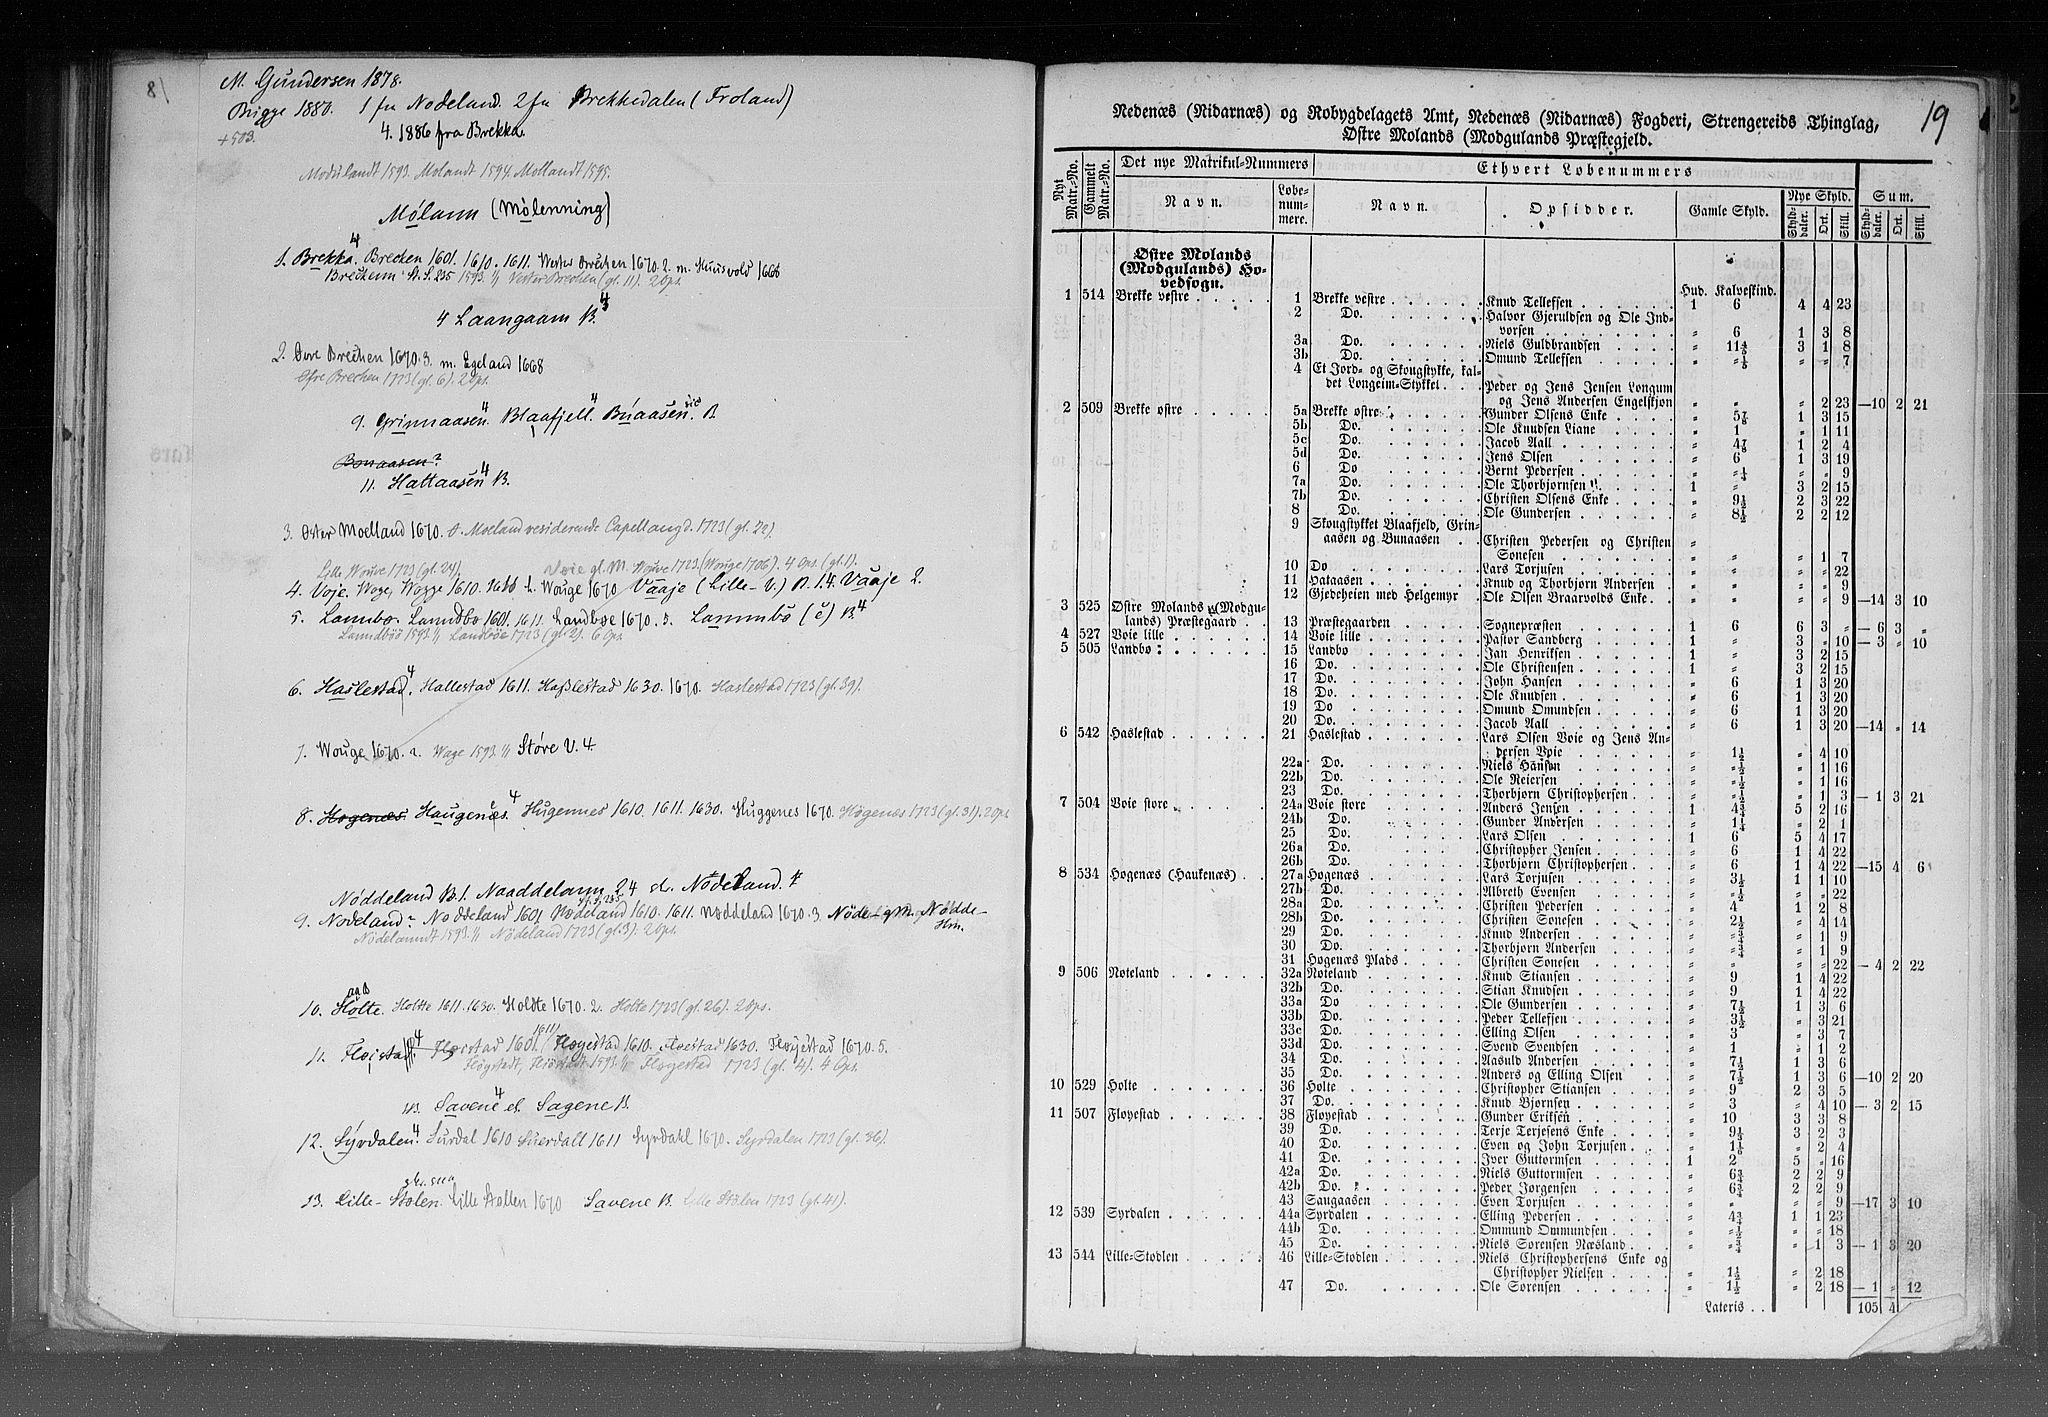 81
M. Gundersen 1878.
Brigge 1880. 1 fra Nodeland. 2 fra Brekkedalen (Froland)
+503. 4. 1886 fra Brekka.
Modulandt 1593. Molandt 1594. Mollandt 1595.
Mólann (Mólenning)
1. Brekka. 4 Brecken 1601. 1610. 1611. Wester Brechen 1670. 2. m. Huusvold 1668
Brechenn St. S. 235 1593. Vester Brechen (gl. 11). 2 Ops.
4 Laangaam B. 4
2. Øvre Brechen 1670. 3. m. Egeland 1668
Øfre Brechen 1723 (gl. 6). 2 Ops.
9. Grinnaasen 4. Blaafjell. 4 Búaasen. sic B.
Bonaasen?
11. Hattaasen 4 B.
3. Øster Moelland 1670. Ø. Moeland residerende Capellangd. 1723 (gl. 22).
Lille Wouve 1723 (gl. 24). Voie gl. M. Wouve 1723. (Wouge 1706). 4 Ops. (gl. 1).
4. Voje. Woge, Wogge 1610. 1611 L. Wouge 1670 Vååje (Lille-V.) B. 1.4. Vååje 2.
5. Lannbo. Lanndbo 1601. 1611. Landbøe 1670. 5. Lammbö (é) B. 4
Lanndböö 1593. Landbøe 1723 (gl. 2). 6 Ops.
6. Haslestad 4. Hallestad 1611. Haßlestad 1630. 1670. Haslestad 1723 (gl. 39).
7. Wouge 1670. 2. Wage 1593. Støre V. 4
8. Hogenæs. Haugenæs. 4 Hugennes 1610. 1611. 1630. Huggenes 1670. Høgenæs 1723 (gl. 31). 2 Ops.
Nóddeland B. 1. Naaddelann 2.4 el. Nødeland. #
9. Nodeland? Noddeland 1601. Nodeland 1610. 1611. Nøddeland 1670. 3 Nöde- gM. Nødde-
Hm.
Nödelanndt 1593. Nödeland 1723 (gl. 3). 2 Ops.
10. Hölte. Holtte 1611. 1630. Holdte 1670. 2. Holte 1723 (gl. 26). 2 Ops.
11. Fløistad. 4 Floistad 1601. 1611) Fløgestad 1610. Fløestad 1630. Fløyestad 1670. 5.
Fløgstedt, Fløstadt 1593. Fløgestad 1723 (gl. 4). 4 Ops.
43. Savene 4 el. Sagene B.
12. Sýrdalen 4. Surdal 1610 Suerdall 1611 Syrdahl 1670. Syrdalen 1723 (gl. 36).
13. Lille-Stølen. Lille Støllen 1670 Savene B. Lille Stølen 1723 (gl. 41).
19
Nedenæs (Nidarnæs) og Robygdelagets Amt, Nedenæs (Nidarnæs) Fogderi, Strengereids Thinglag,
Østre Molands (Modgulands Præstegjeld.
Nyt Matr.-No. Gammelt Matr.-No. Det nye Matrikul-Nummers Ethvert Løbenummers
Navn. Løbenummere. Navn. Opsidder. Gamle Skyld. Nye Skyld. Sum.
Skylddaler. Ort. Skill. Skylddaler. Ort. Skill.
Østre Molands
(Modgulands) Ho-
vedsogn. Hud. Kalveskind.
1 514 Brekke vestre 1 Brekke vestre Knud Tellefsen 1 6 4 4 23
2 Do. Halvor Gjeruldsen og Ole Ind-
vorsen " 6 1 3 8
3a Do. Niels Guldbrandsen " 11 4/5 3 1 8
3b Do. Omund Tellefsen " " 1/5 " " 7
4 Et Jord- og Skougstykke, kal-
det Longeim-Stykket Peder og Jens Jensen Longum
og Jens Andersen Engelskjøn " " " 2 23 —10 2 21
2 509 Brekke østre 5a Brekke østre Gunder Olsens Enke " 5 7/8 1 3 15
5b Do. Ole Knudsen Liane " 1 " 1 11
5c Do. Jacob Aall " 4 7/8 1 2 4
5d Do. Jens Olsen " 6 1 3 19
6 Do Bernt Pedersen " " 1/4 " " 9
7a Do. Ole Thorbjørnsen 1 " 3 2 15
7b Do. Christen Olsens Enke " 9 1/2 2 3 22
8 Do. Ole Gundersen " 8 1/2 2 2 12
9 Skougstykket Blaafjeld, Grin-
aasen og Bunaasen Christen Pedersen og Christen
Sonesen " " " 1 7
10 Do Lars Torjusen " " " " 22
11 Hataasen Knud og Thorbjørn Andersen " " " " 9
12 Gjedeheien med Helgemyr Ole Olsen Braarvolds Enke " " " " 9 —14 3 10
3 525 Østre Molands (Modgu-
lands) Præstegaard 13 Præstegaarden Sognepræsten 1 6 6 3 " — 6 3 "
4 527 Voie lille 14 Voie lille Pastor Sandberg 1 " 3 " 10 — 3 " 10
5 505 Landbø 15 Landbø Jan Henriksen 1 " 3 2 15
16 Do. Ole Christensen 1 " 3 2 15
17 Do. John Hansen " 6 1 3 20
18 Do Ole Knudsen " 6 1 3 20
19 Do Omund Omundsen " 6 1 3 20
20 Do. Jacob Aall " 6 1 3 20 —14 " 14
6 542 Haslestad 21 Haslestad Lars Olsen Voie og Jens An-
dersen Voie " 1 1/2 " 4 10
22a Do. Niels Hansen " " 1/2 " 1 16
22b Do. Ole Reiersen " " 1/2 " 1 16
23 Do. Thorbjørn Christophersen " " 1/2 " 1 3 — 1 3 21
7 504 Voie store 24a Voie store Anders Jensen 1 4 3/4 5 2 16
24b Do. Gunder Andersen " 1 1/4 " 2 1
25 Do. Lars Olsen 1 6 5 4 17
26a Do. Christopher Jensen " 6 1 4 22
26b Do. Thorbjørn Christophersen " 6 1 4 22 —15 4 6
8 534 Hogenæs (Haukenæs) 27a Hogenæs Lars Torjusen " 3 1/2 1 1 10
27b Do. Albreth Evensen " " 1/2 " " 22
28a Do. Christen Pedersen " 4 1 2 8
28b Do. Christen Sonesen " 2 1/2 " 4 14
29 Do. Knud Andersen " " 3/4 " 1 9
30 Do. Thorbjørn Andersen " " 3/4 " 1 9
31 Hogenæs Plads Christen Sonesen " " " " 22 — 4 2 22
9 506 Noteland 32a Noteland Knud Stiansen " 9 1 4 22
32b Do. Stian Knudsen " 9 1 4 22
33a Do Ole Gundersen " 7 1/2 1 3 6
33b Do. Peder Tellefsen " 3 1/2 " 3 21
33c Do. Elling Olsen " 3 " 3 7
33d Do. Svend Svendsen " 1 " 1 2
34 Do. Aasuld Andersen " 7 1/2 1 3 6
35 Do. Anders og Elling Olsen " 7 1/2 1 3 6 —10 2 20
10 529 Holte 36 Holte Christopher Stiansen " 9 2 3 5
37 Do. Knud Bjørnsen " 3 " 4 10 — 3 2 15
11 507 Fløyestad 38 Fløyestad Gunder Eriksen " 10 3 3 8
39 Do. Terje Terjesens Enke " 9 1/3 3 2 3
40 Do. Even og John Torjusen " 1 1/6 " 2 4
41 Do. Iver Guttormsen 1 2 5 " 16
42a Do. Niels Guttormsen " 6 3/4 2 2 9
42b Do. Peder Jørgensen " 6 3/4 2 2 9
43 Saugaasen Even Torjusen " " " " 9 —17 3 10
12 539 Syrdalen 44a Syrdalen Elling Pedersen " 4 3/4 1 1 23
44b Do. Ommund Ommundsen " " 1/2 " " 18
45 Do. Niels Sørensen Næsland " " 3/4 " 1 3 — 1 3 20
13 544 Lille-Stødlen 46 Lille-Stødlen Niels Christophersens Enke og
Christopher Nielsen " 1 1/2 " 2 18
47 Do. Ole Sørensen " 1 1/2 " 2 18 — 1 " 12
Lateris 105 4